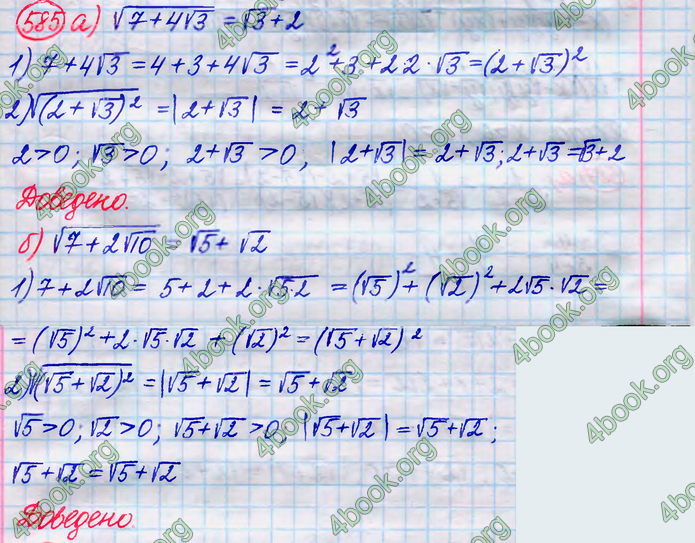 585 а) √(7+4√3) = √3+2
1) 7+4√3 = 4+3+4√3 = 2²+3+2·2·√3 = (2+√3)²
2) √((2+√3)²) = |2+√3| = 2+√3
2>0; √3>0; 2+√3>0, |2+√3| = 2+√3; 2+√3=√3+2
Доведено.
б) √(7+2√10) = √5+√2
1) 7+2√10 = 5+2+2·√(5·2) = (√5)²+(√2)²+2√5·√2 =
= (√5)²+2·√5·√2+(√2)² = (√5+√2)²
2) √((√5+√2)²) = |√5+√2| = √5+√2
√5>0; √2>0; √5+√2>0, |√5+√2| = √5+√2;
√5+√2 = √5+√2
Доведено.
4book.org